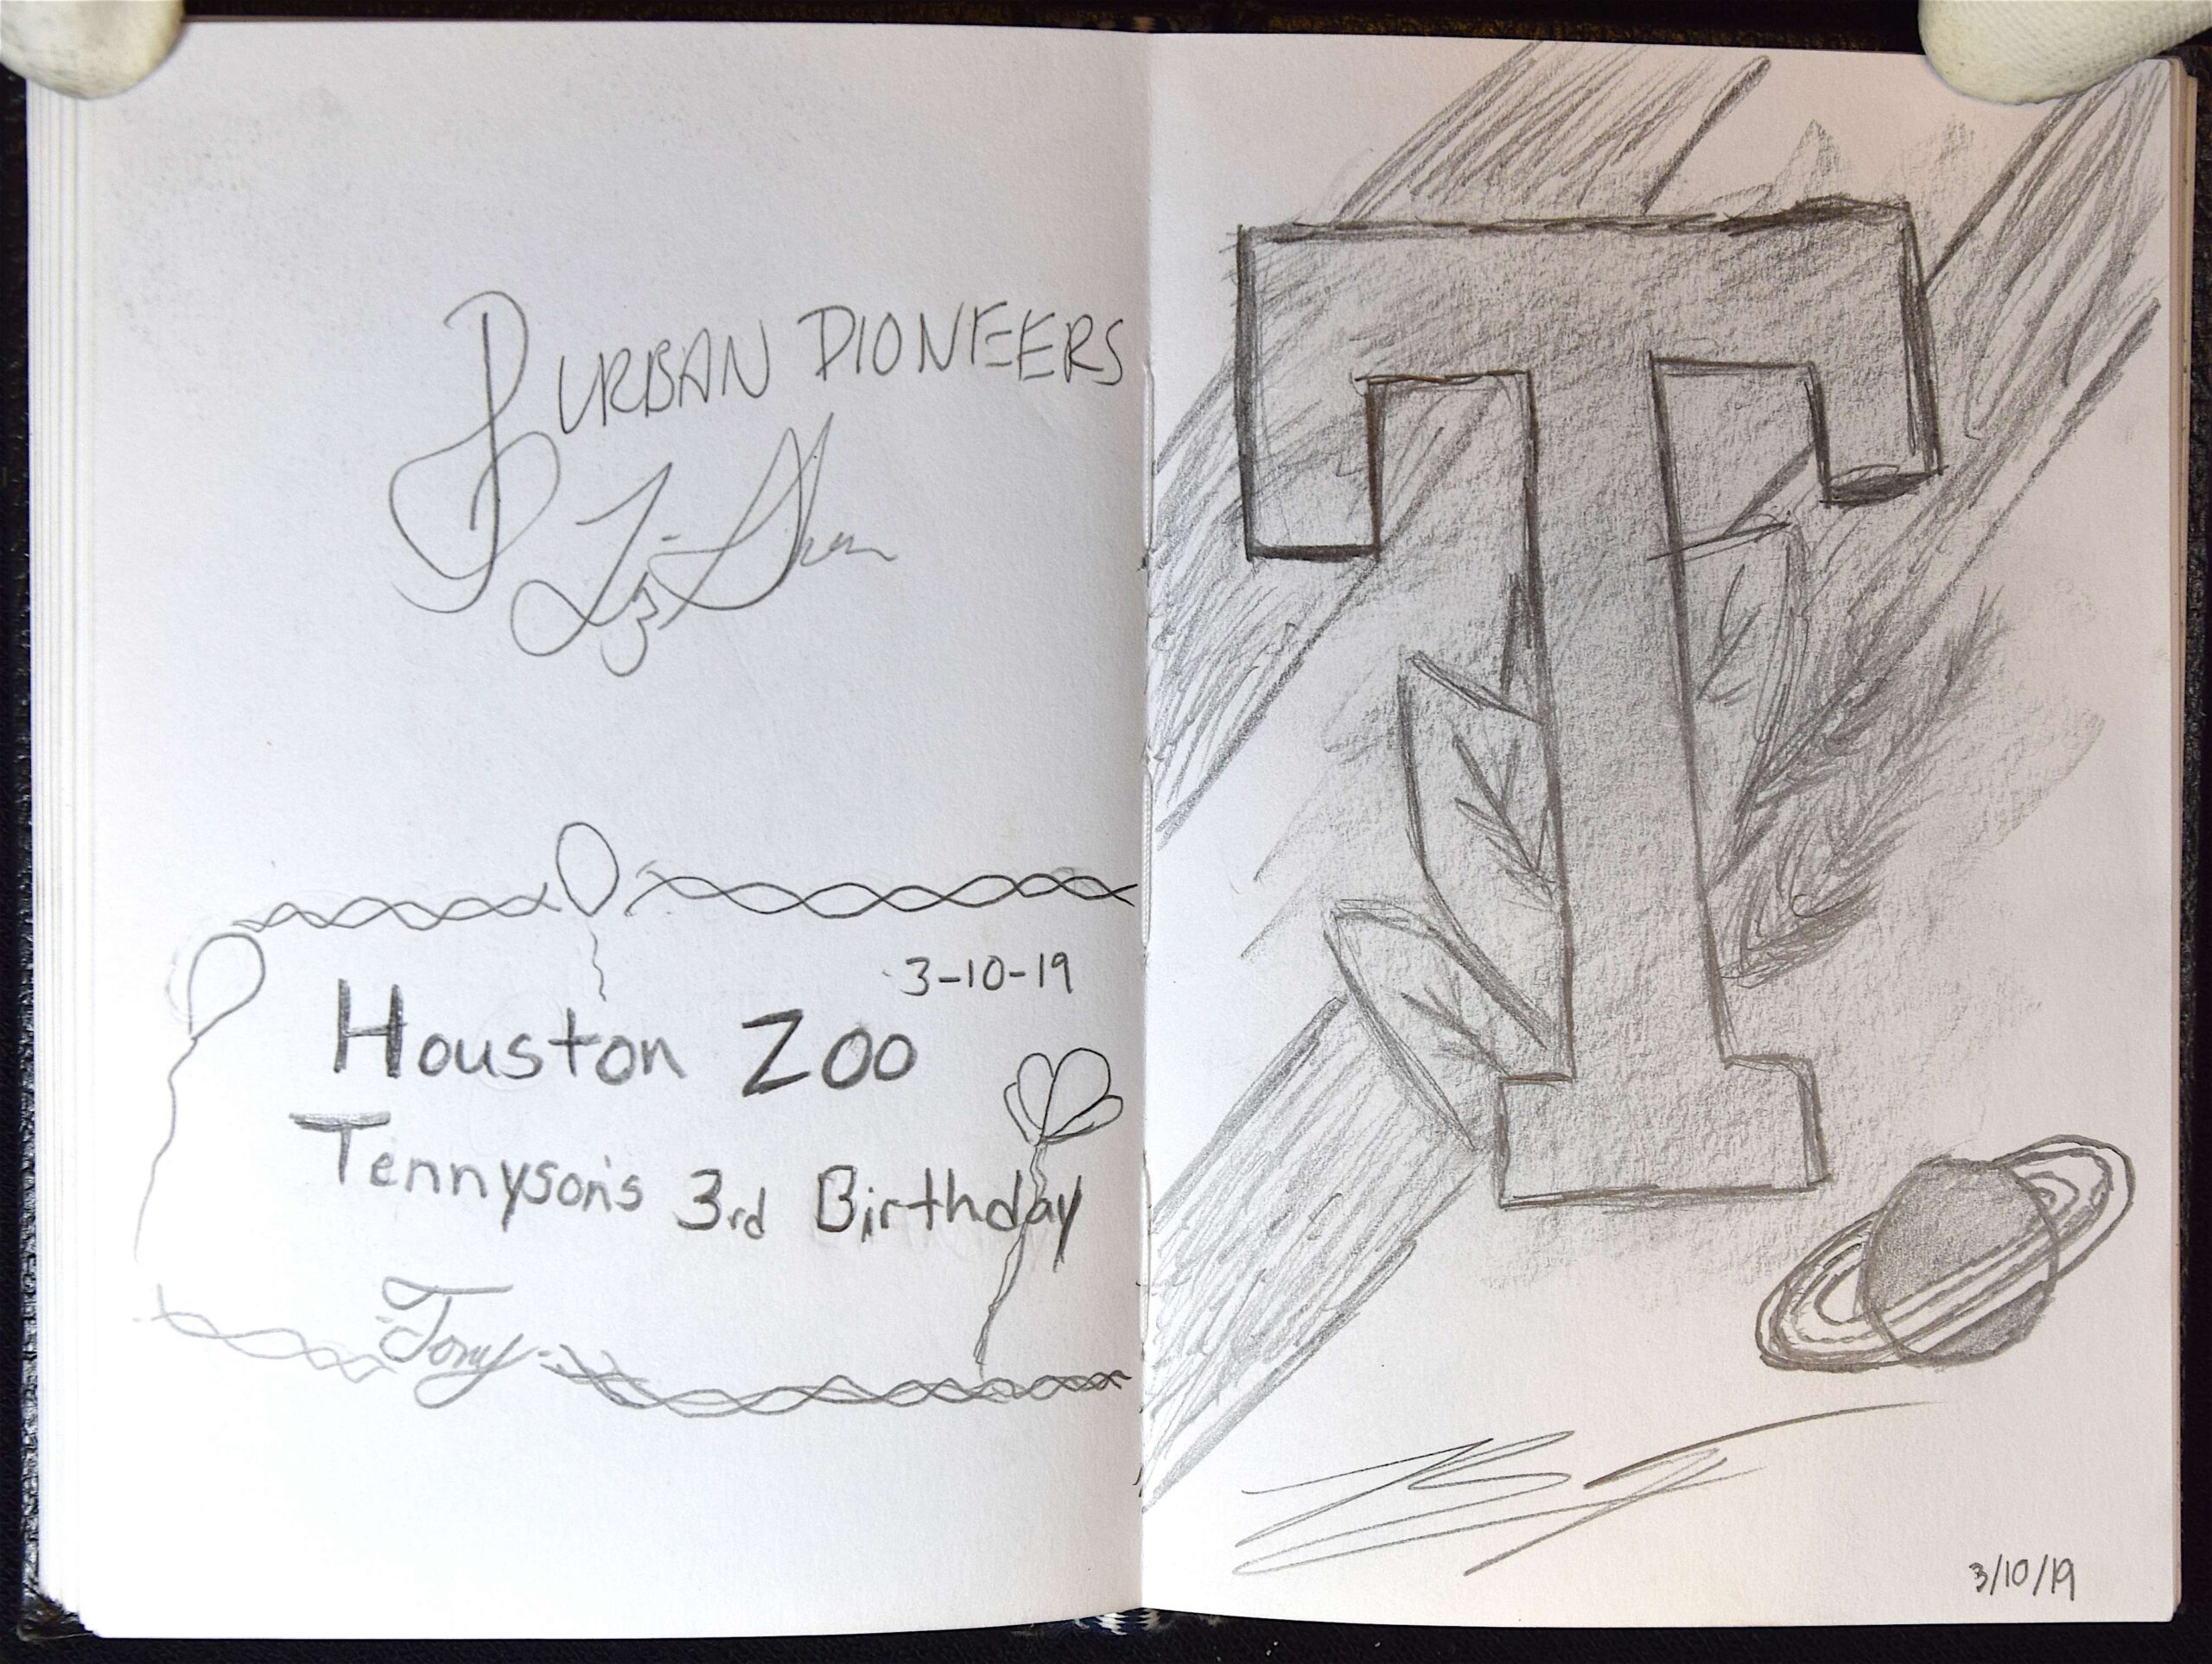 URBAN PIONEERS
3-10-19
Houston Zoo
Tennyson's 3rd Birthday
Tony
T
3/10/19